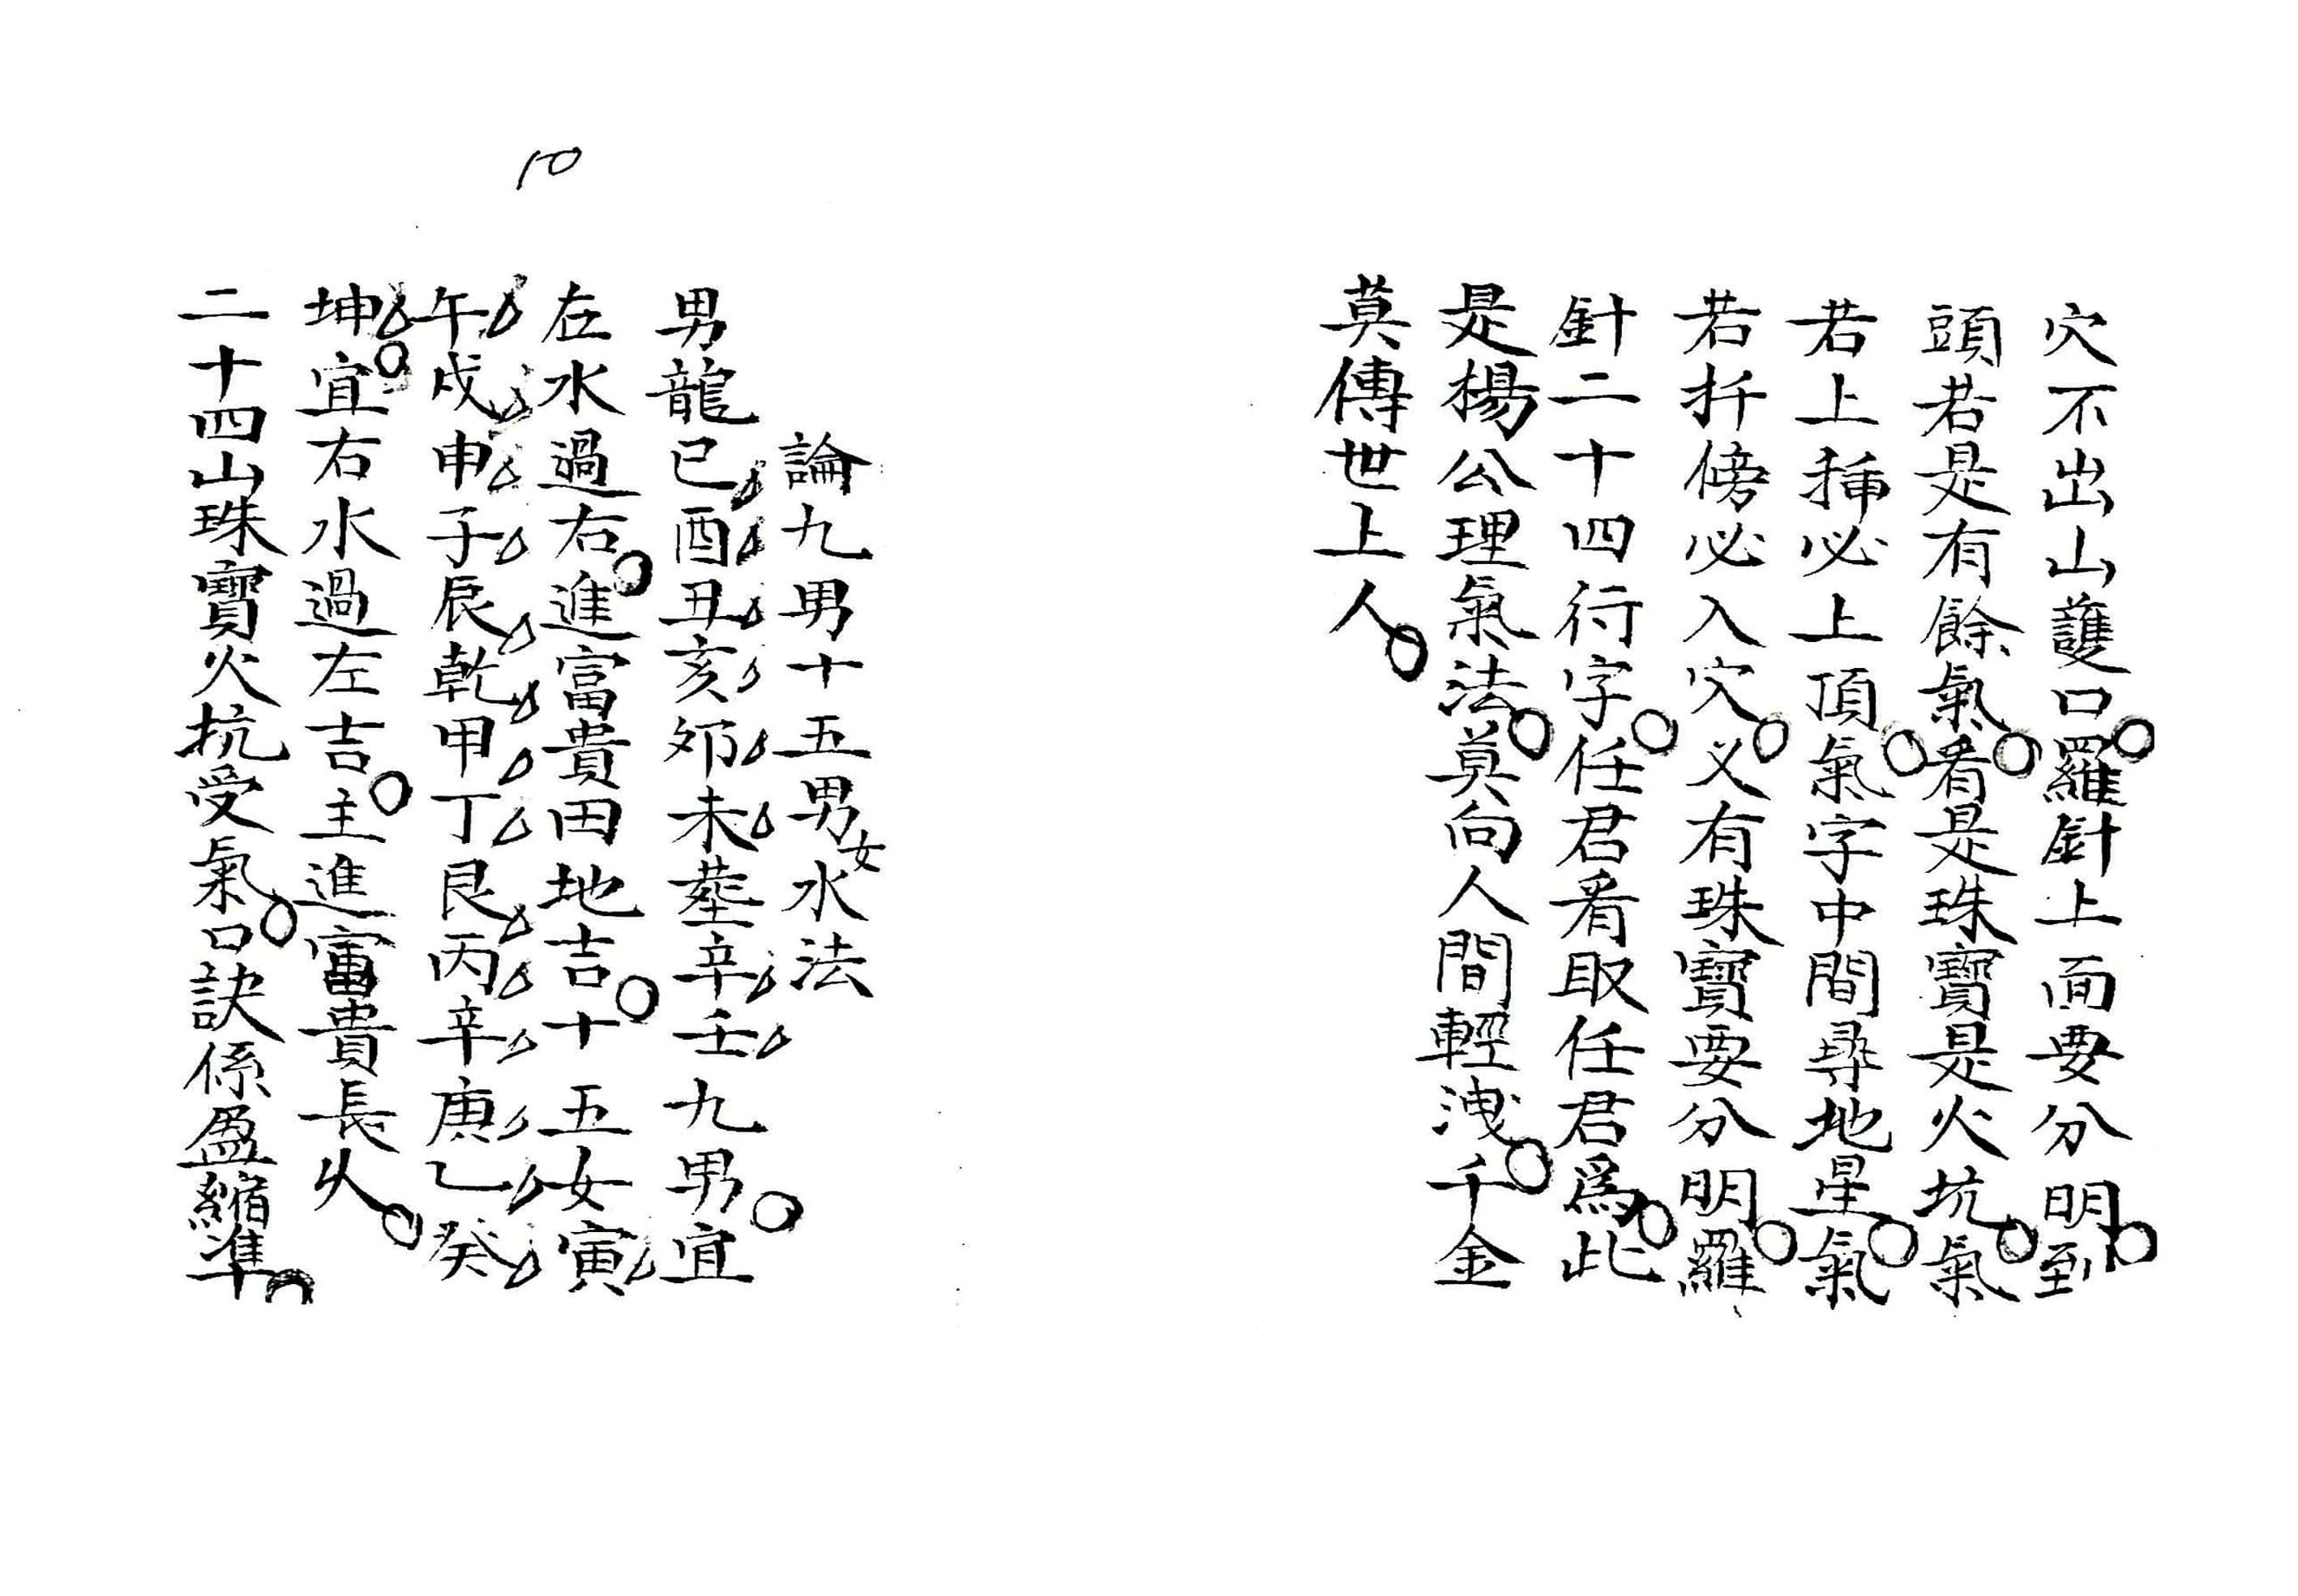 穴不出山護口。羅針上面要分明。到
頭若是有餘氣。看是珠寶是火坑。氣
若上揷必上頂。氣字中間尋地星。氣
若扦傍必入穴。又有珠寶要分明。羅
針二十四行字。任君看取任君爲。此
是楊公理氣法。莫向人間輕洩。千金
莫傳世上人。
論九男十五男女水法
男龍巳、酉、丑、亥、夘、未、塟辛、壬、九男。宜
左水過右。進富貴田地吉。十五女寅、
午、戌、申、子、辰、乾、甲、丁、艮、丙、辛、庚、乙、癸、
坤、。宜右水過左吉。主進富貴長久。
二十四山珠寶火抗受氣。口訣係盈縮準
10